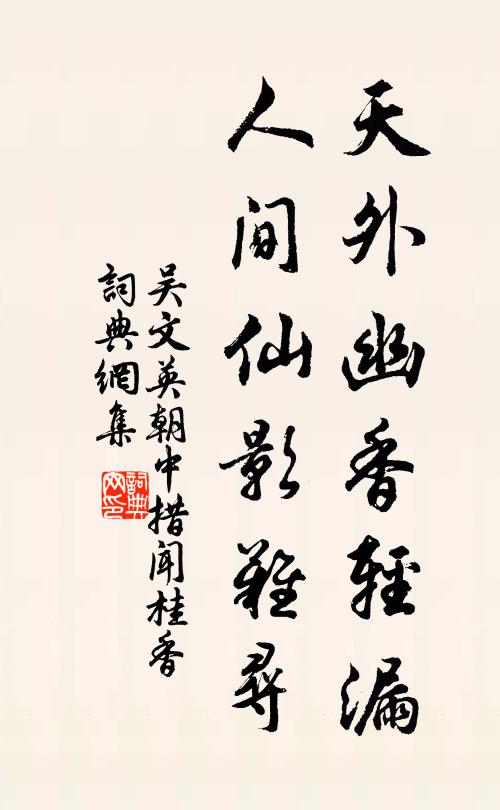 天外幽香輕漏
人间仙影難尋
吴文英朝中措闻桂香
詞典網集
詞典网印